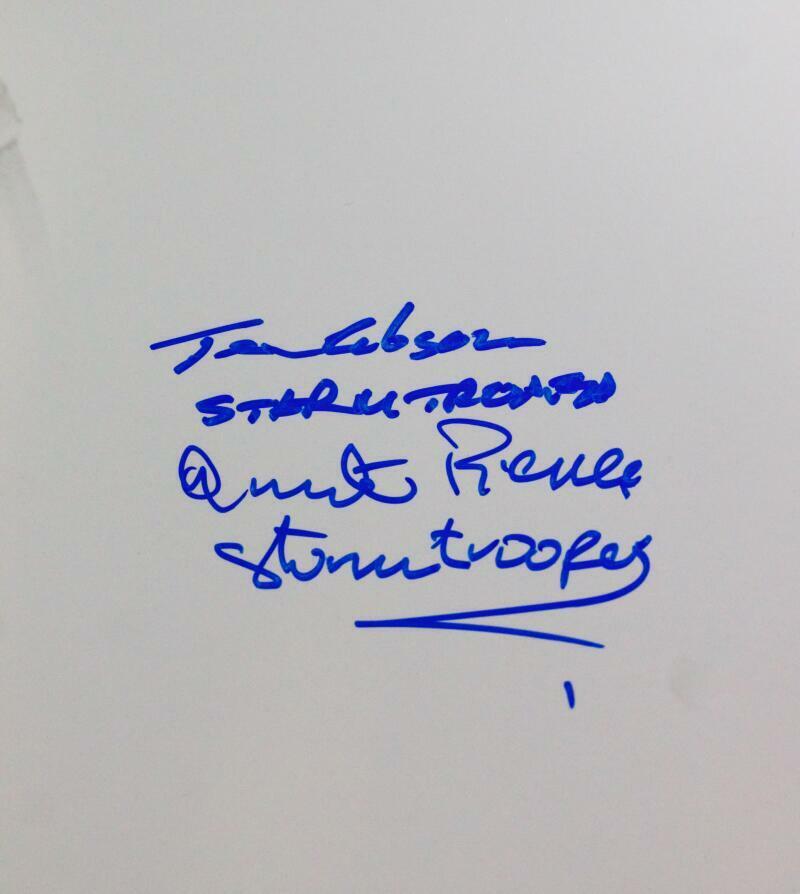 Terry Gibson
STORMTROOPER
Quentin Pierre
Stormtrooper